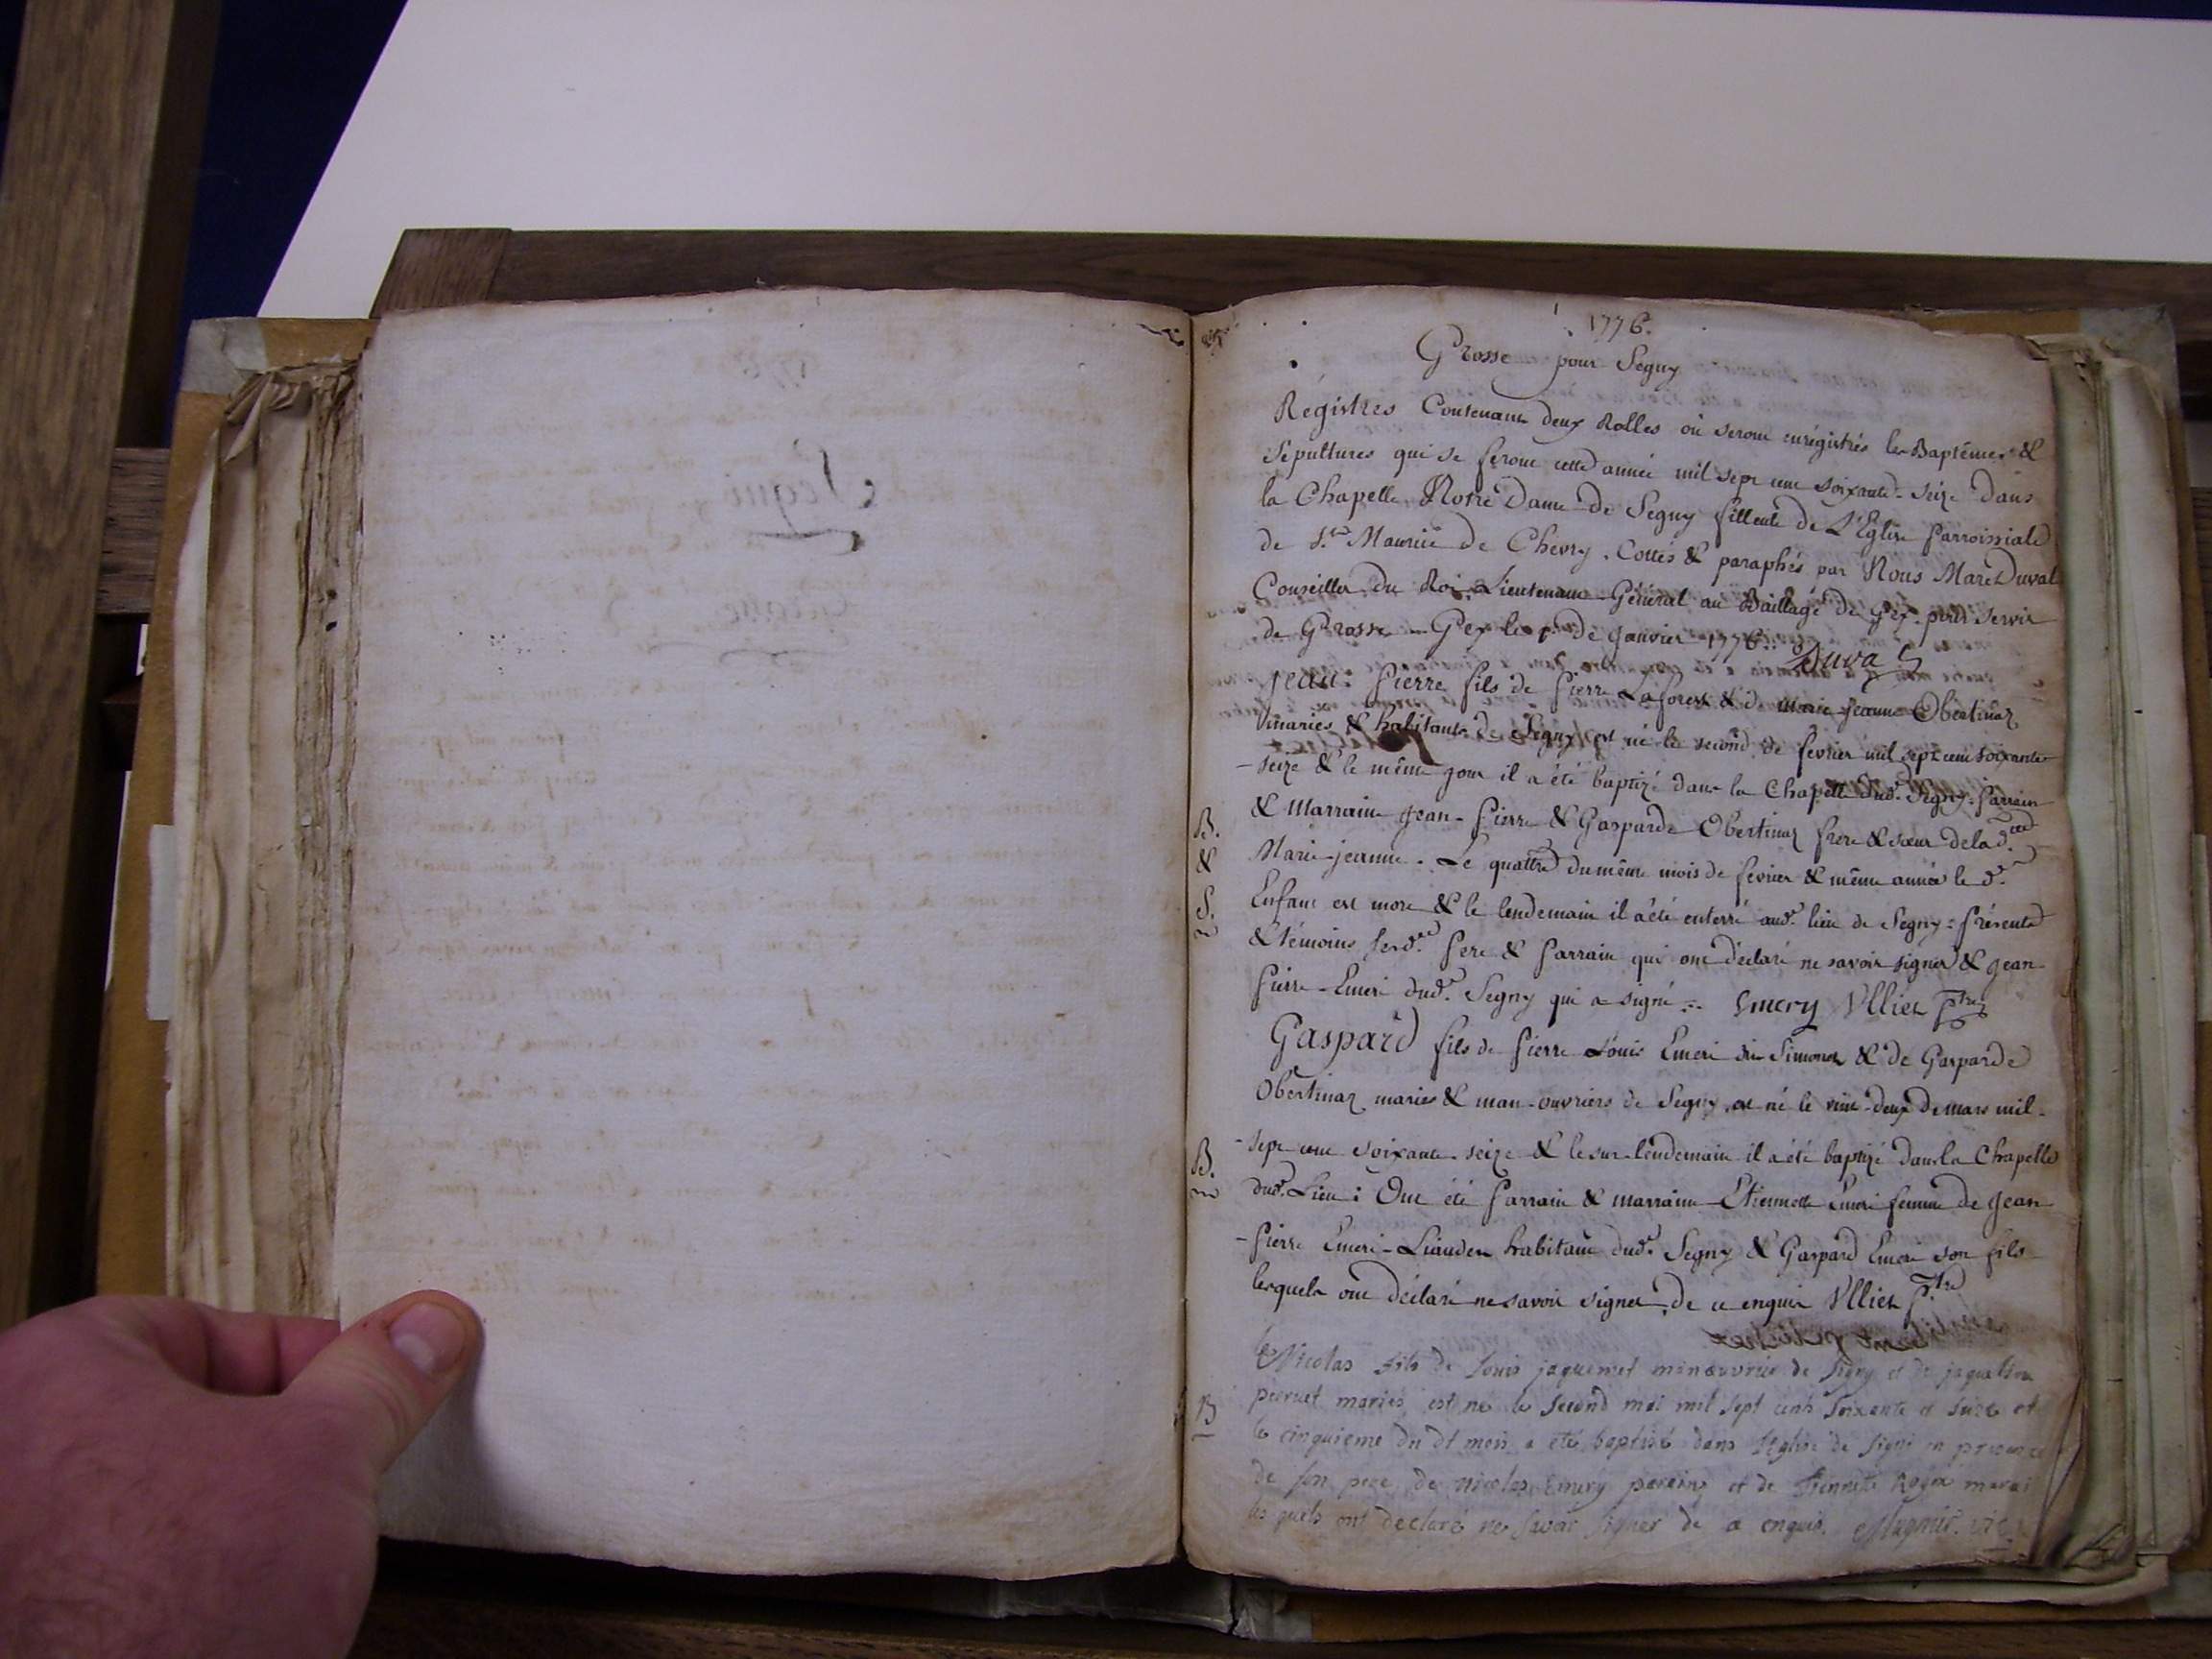 1776.
Grosse pour Segny
Régistres Contenant deux Rolles où seront enrégistrés les Baptêmes &
sépultures qui se feront cette année mil sept cent soixante-seize dans
la Chapelle Notre Dame de Segny filleule de L'Eglise Parroissiale
de St. Maurice de Chevry. Cottés & paraphés par Nous Marc Duval
Conseiller du Roi Lieutenant Général au Baillage de Gex pour servir
de Grosse - Gex le de janvier 1776. Duval
Jean-Pierre fils de Pierre Laforest & de Marie-jeanne Obertinaz
mariés & habitants de Segny est né le second de fevrier mil sept cent soixante
-seize & le même jour il a été baptizé dans la Chapelle dud.t Segny: Parrain
& Marraine Jean-Pierre & Gasparde Obertinaz frere & sœur de la d.te
B.
&
Marie-jeanne. Le quattre du même mois de fevrier & même année le d.t
S.
Enfant est mort & le lendemain il a été enterré aud.t lieu de Segny: Présents
& témoins Pere & Parrain qui ont déclaré ne savoir signer & Jean
Pierre-Emeri dud.t Segny qui a signé. Emery Ulliet Ptre
Gaspard fils de Pierre Louis Emeri dit Simonet & de Gasparde
Obertinaz mariés & man-ouvriers de Segny, est né le vint-deux de mars mil-
-sept cent soixante-seize & le sur-lendemain il a été baptizé dans la Chapelle
B.
dud.t Lieu: Ont été Parrain & marraine Etiennette Emeri femme de Jean
-Pierre Emeri-Liauden habitant dud.t Segny & Gaspard Emeri son fils
lesquels ont déclaré ne savoir signer, de ce enquis Ulliet Ptre
Nicolas fils de Louis jaquemet manœuvrier de Signy et de
pernet mariés est né le second mai mil sept cents soixante et seize et
B
le cinquieme du dt mois a été baptisé dans l'eglise de Signi en presence
de son pere, de nicolas Emery parrain et de
les quels ont declaré ne savoir signer de ce enquis. vic.